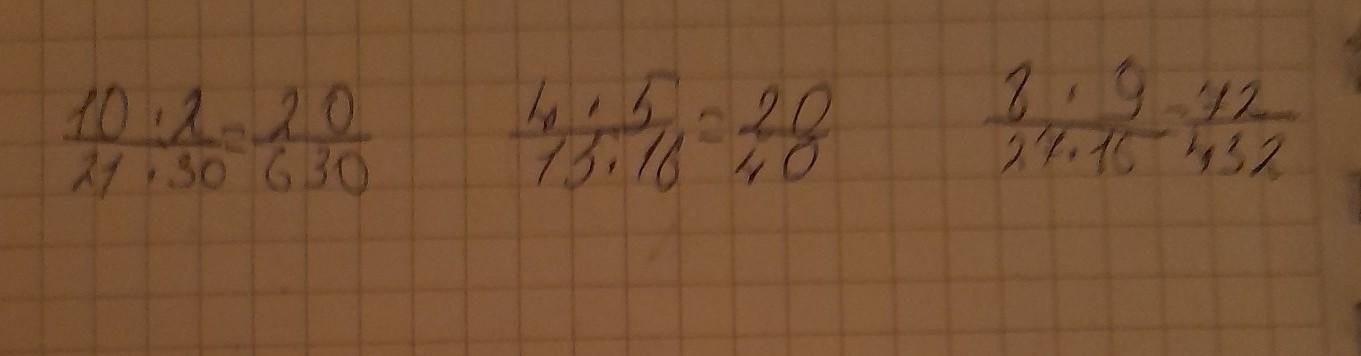 10 · 2 / 21 · 30 = 20 / 630
4 · 5 / 15 · 16 = 20 / 40
8 · 9 / 27 · 16 = 72 / 432